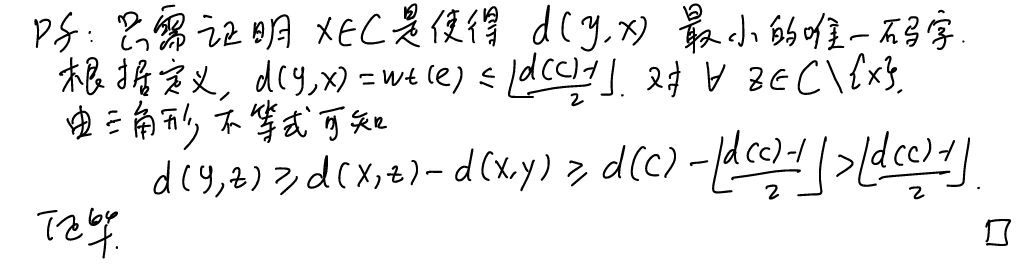 Pf: 只需证明 x∈C 是使得 d(y,x) 最小的唯一码字.
根据定义, d(y,x)=wt(e) ≤ ⌊(d(C)-1)/2⌋. 对 ∀ z∈C\{x},
由三角形不等式可知
d(y,z) ≥ d(x,z) - d(x,y) ≥ d(C) - ⌊(d(C)-1)/2⌋ > ⌊(d(C)-1)/2⌋.
证毕. □